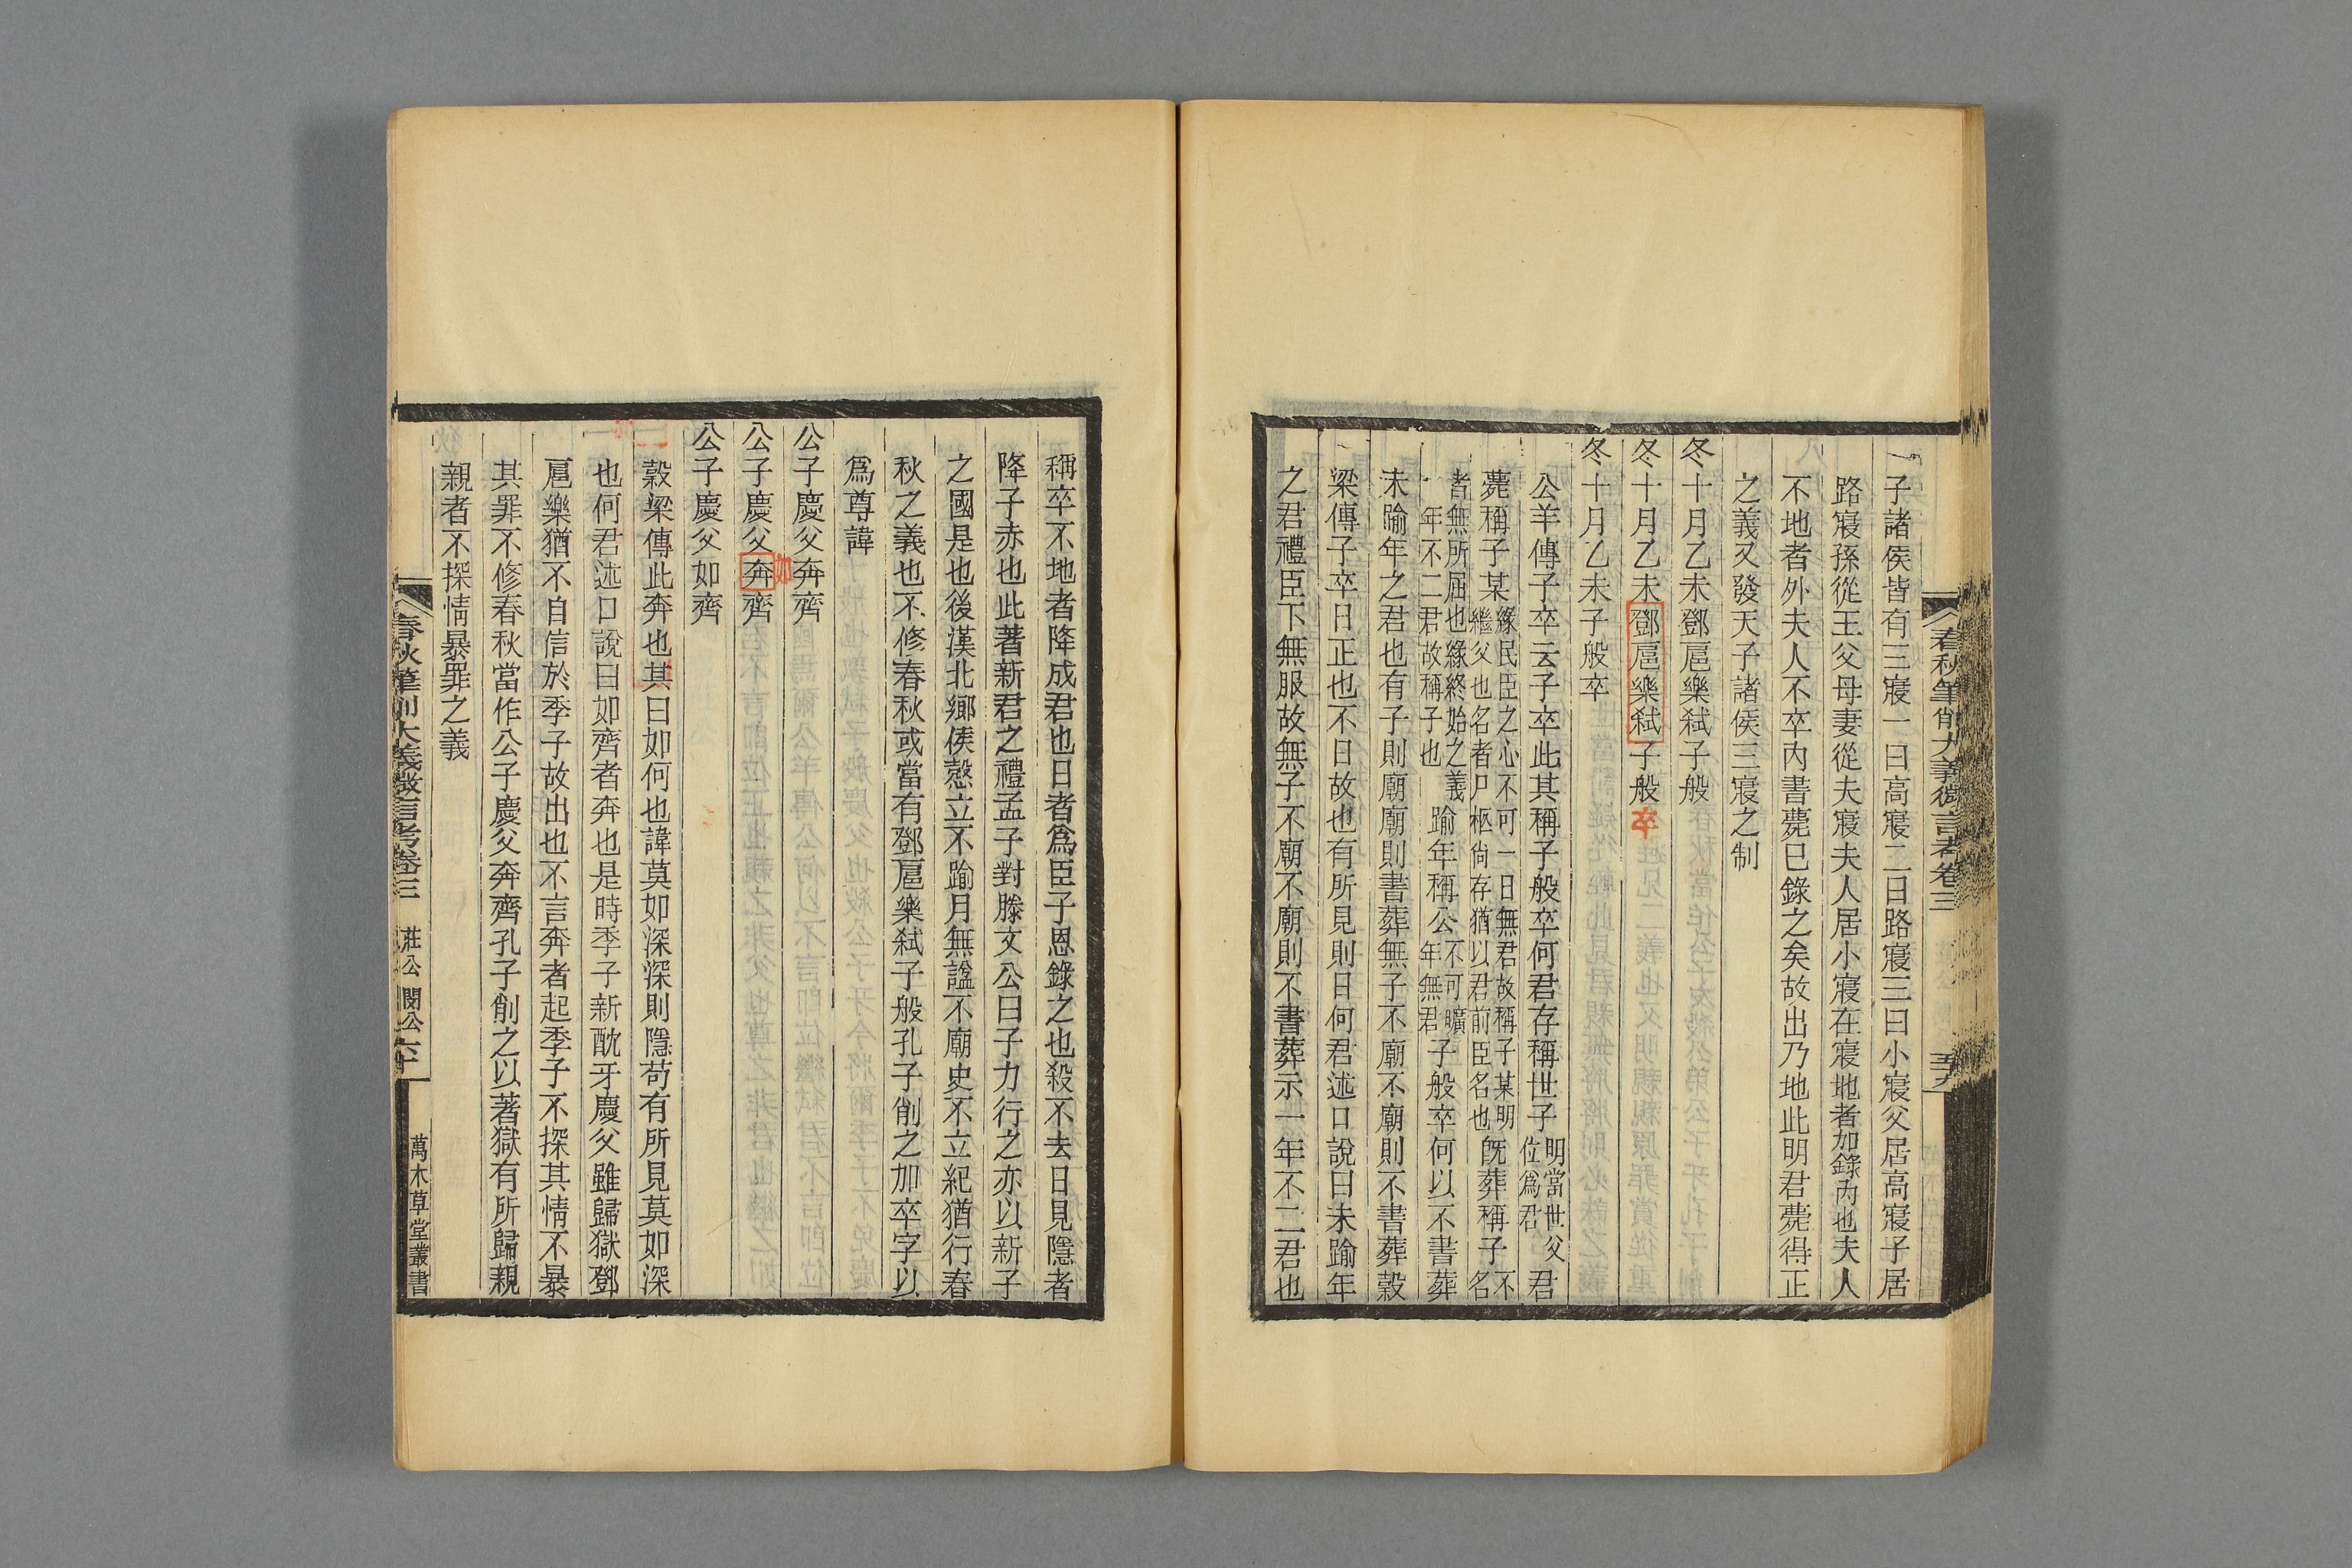 春秋筆削大義微言考卷三
五十九
子諸侯皆有三寢一曰高寢二曰路寢三曰小寢父居高寢子居
路寢孫從王父母妻從夫寢夫人居小寢在寢地者加錄內也夫人
不地者外夫人不卒內書薨已錄之矣故出乃地此明君薨得正
之義又發天子諸侯三寢之制
冬十月乙未鄧扈樂弒子般
冬十月乙未鄧扈樂弒子般卒
冬十月乙未子般卒
公羊傳子卒云子卒此其稱子般卒何君存稱世子明當世父位爲君君
薨稱子某緣民臣之心不可一日無君故稱子某明繼父也名者尸柩尚存猶以君前臣名也旣葬稱子不名
者無所屈也緣終始之義一年不二君故稱子也踰年稱公不可曠年無君子般卒何以不書葬
未踰年之君也有子則廟廟則書葬無子不廟不廟則不書葬穀
梁傳子卒日正也不日故也有所見則日何君述口說曰未踰年
之君禮臣下無服故無子不廟不廟則不書葬示一年不二君也
稱卒不地者降成君也日者爲臣子恩錄之也殺不去日見隱者
降子赤也此著新君之禮孟子對滕文公曰子力行之亦以新子
之國是也後漢北鄉侯懿立不踰月無諡不廟史不立紀猶行春
秋之義也不修春秋或當有鄧扈樂弒子般孔子削之加卒字以
爲尊諱
公子慶父奔齊
公子慶父奔如齊
公子慶父如齊
穀梁傳此奔也其曰如何也諱莫如深深則隱苟有所見莫如深
也何君述口說曰如齊者奔也是時季子新酖牙慶父雖歸獄鄧
扈樂猶不自信於季子故出也不言奔者起季子不探其情不暴
其罪不修春秋當作公子慶父奔齊孔子削之以著獄有所歸親
親者不探情暴罪之義
春秋筆削大義微言考卷三 莊公 閔公 六十
萬木草堂叢書